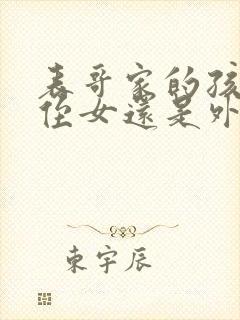 表哥家的孩
侄女還是外
東宇辰